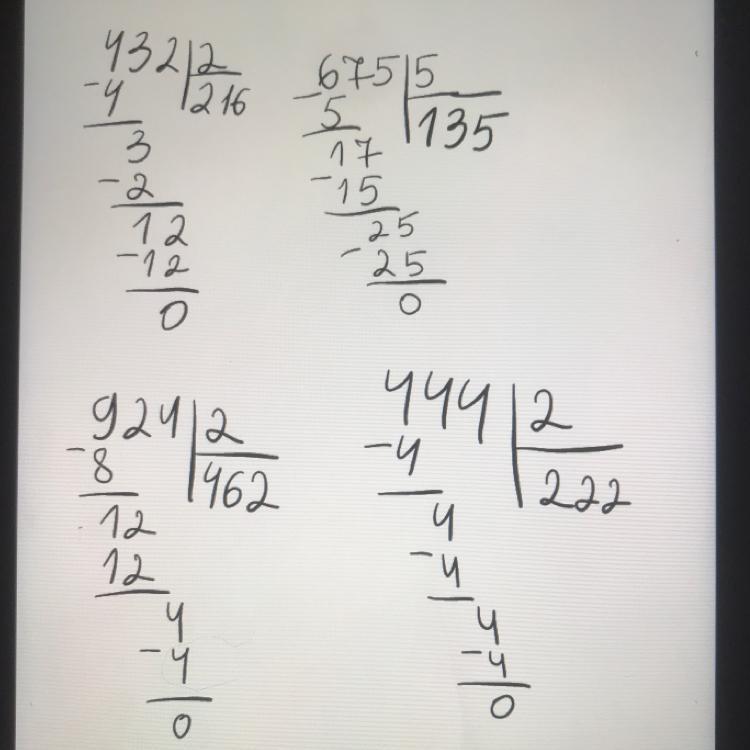 432 2
-4 216
3
-2
12
-12
0
675 5
-5 135
17
-15
25
-25
0
924 2
-8 462
12
12
4
-4
0
444 2
-4 222
4
-4
4
-4
0